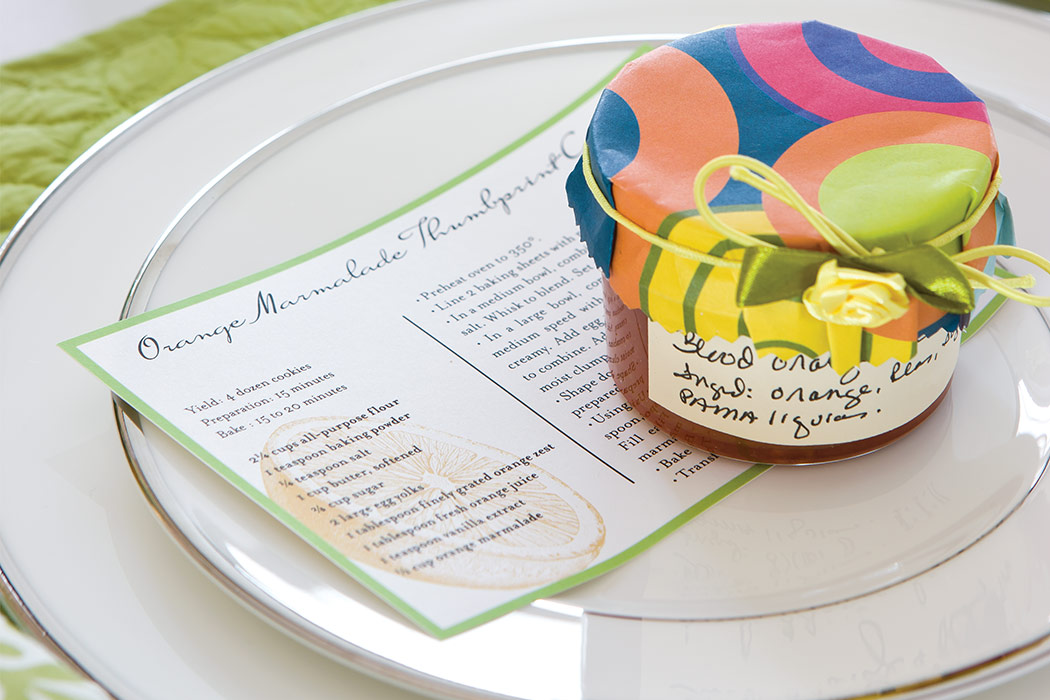 Orange Marmalade Thumbprint C
Yield: 4 dozen cookies
Preparation: 15 minutes
Bake : 15 to 20 minutes
cups all-purpose flour
1 teaspoon baking powder
¼ teaspoon salt
1 cup butter, softened
cup sugar
2 large egg yolks
1 tablespoon finely grated orange zest
1 tablespoon fresh orange juice
1 teaspoon vanilla extract
cup orange marmalade
• Preheat oven to 350°.
• Line 2 baking sheets with
• In a medium bowl, comb
salt. Whisk to blend. Set
• In a large bowl, co
medium speed with
creamy. Add egg
to combine. Ad
moist clump
• Shape do
prepared
• Using
spoon,
Fill e
marma
• Bake
• Trans
Blood orang
Ingrd: orange,
PAMA